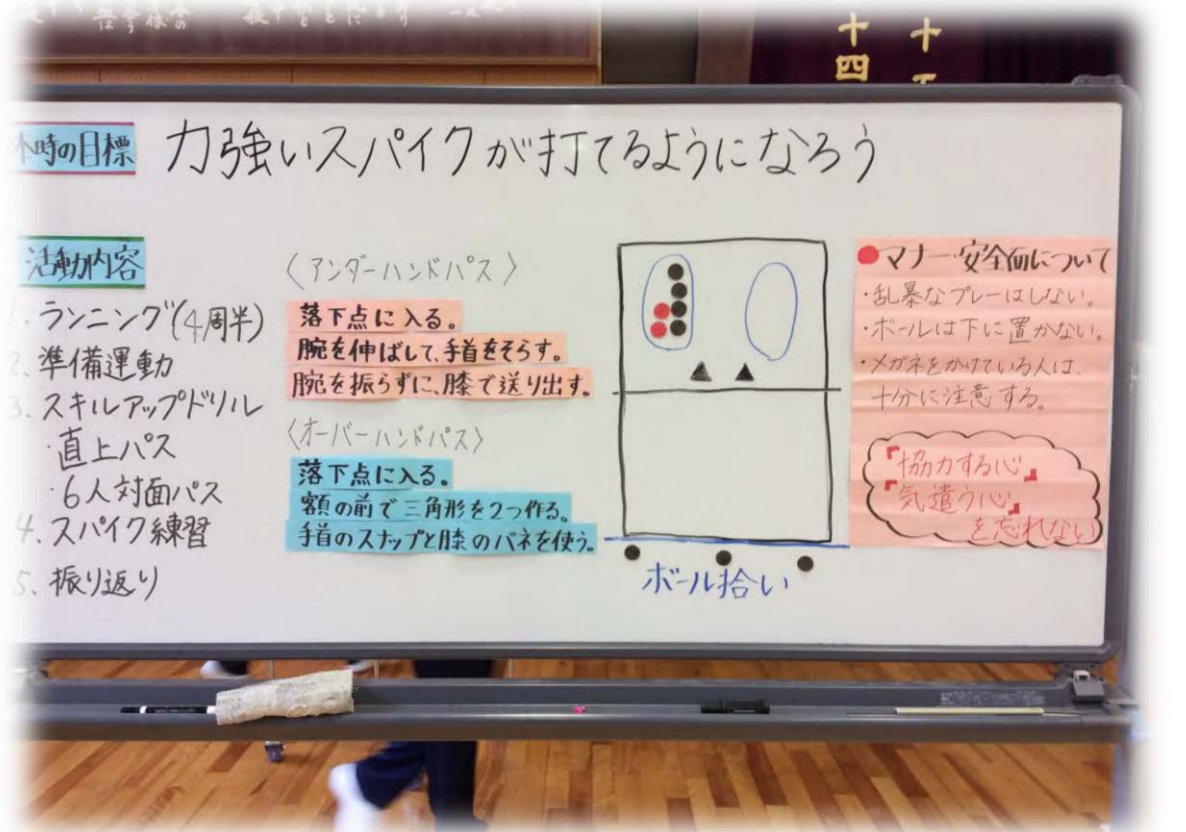 十四
十五
本時の目標 力強いスパイクが打てるようになろう
活動内容
1. ランニング(4周半)
2. 準備運動
3. スキルアップドリル
・直上パス
・6人対面パス
4. スパイク練習
5. 振り返り
〈アンダーハンドパス〉
落下点に入る。
腕を伸ばして、手首をそらす。
腕を振らずに、膝で送り出す。
〈オーバーハンドパス〉
落下点に入る。
額の前で三角形を2つ作る。
手首のスナップと膝のバネを使う。
ボール拾い
●マナー・安全面について
・乱暴なプレーはしない。
・ボールは下に置かない。
・メガネをかけている人は、
十分に注意する。
『協力する心』
『気遣う心』
を忘れない